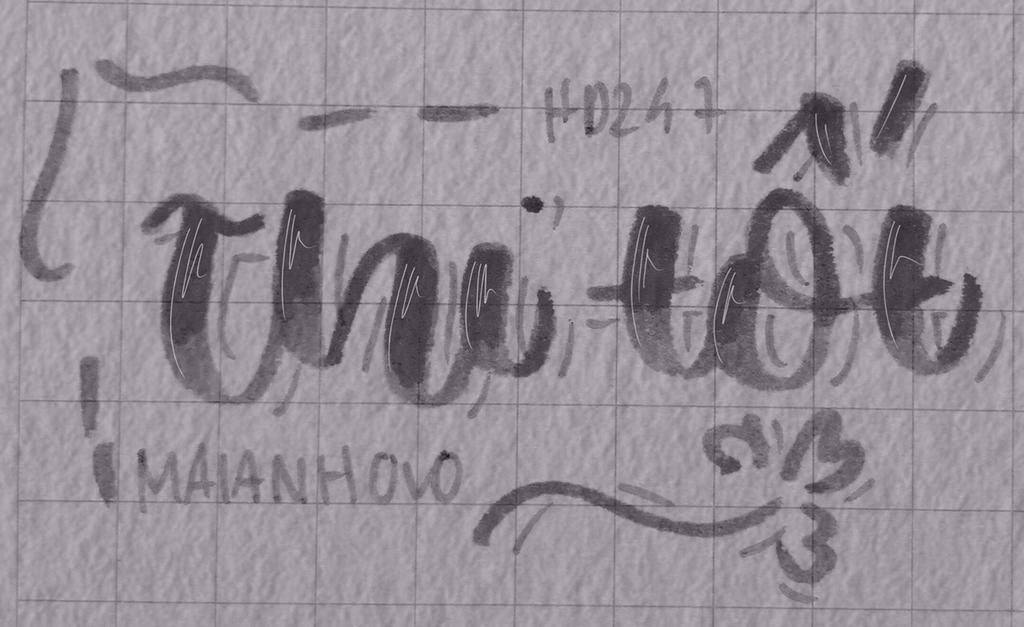 HD247
Thi tốt
MAIANHOVO